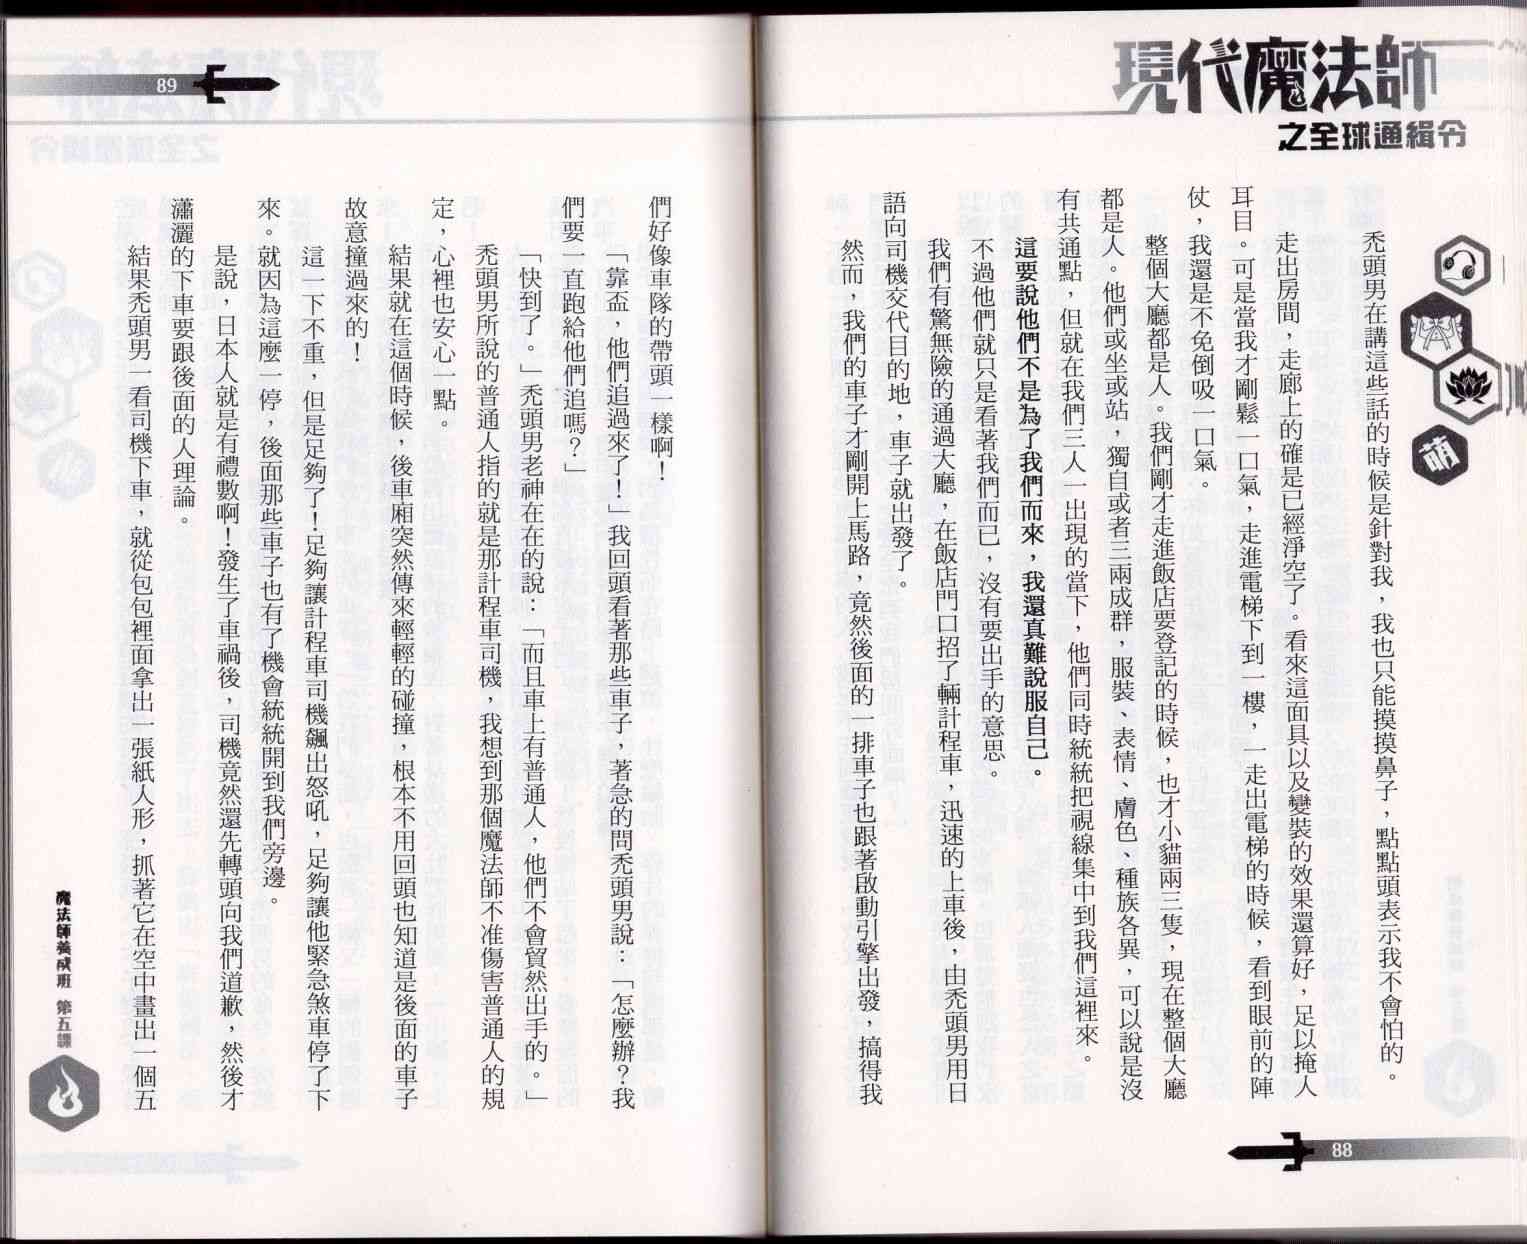 現代魔法師
之全球通緝令
萌
禿頭男在講這些話的時候是針對我，我也只能摸摸鼻子，點點頭表示我不會怕的。
走出房間，走廊上的確是已經淨空了。看來這面具以及變裝的效果還算好，足以掩人
耳目。可是當我才剛鬆一口氣，走進電梯下到一樓，一走出電梯的時候，看到眼前的陣
仗，我還是不免倒吸一口氣。
整個大廳都是人。我們剛才走進飯店要登記的時候，也才小貓兩三隻，現在整個大廳
都是人。他們或坐或站，獨自或者三兩成群，服裝、表情、膚色、種族各異，可以說是沒
有共通點，但就在我們三人一出現的當下，他們同時統統把視線集中到我們這裡來。
這要說他們不是為了我們而來，我還真難說服自己。
不過他們就只是看著我們而已，沒有要出手的意思。
我們有驚無險的通過大廳，在飯店門口招了輛計程車，迅速的上車後，由禿頭男用日
語向司機交代目的地，車子就出發了。
然而，我們的車子才剛開上馬路，竟然後面的一排車子也跟著啟動引擎出發，搞得我
88
89
們好像車隊的帶頭一樣啊！
「靠盃，他們追過來了！」我回頭看著那些車子，著急的問禿頭男說：「怎麼辦？我
們要一直跑給他們追嗎？」
「快到了。」禿頭男老神在在的說：「而且車上有普通人，他們不會貿然出手的。」
禿頭男所說的普通人指的就是那計程車司機，我想到那個魔法師不准傷害普通人的規
定，心裡也安心一點。
結果就在這個時候，後車廂突然傳來輕輕的碰撞，根本不用回頭也知道是後面的車子
故意撞過來的！
這一下不重，但是足夠了！足夠讓計程車司機飆出怒吼，足夠讓他緊急煞車停了下
來。就因為這麼一停，後面那些車子也有了機會統統開到我們旁邊。
是說，日本人就是有禮數啊！發生了車禍後，司機竟然還先轉頭向我們道歉，然後才
瀟灑的下車要跟後面的人理論。
結果禿頭男一看司機下車，就從包包裡面拿出一張紙人形，抓著它在空中畫出一個五
魔法師養成班 第五課